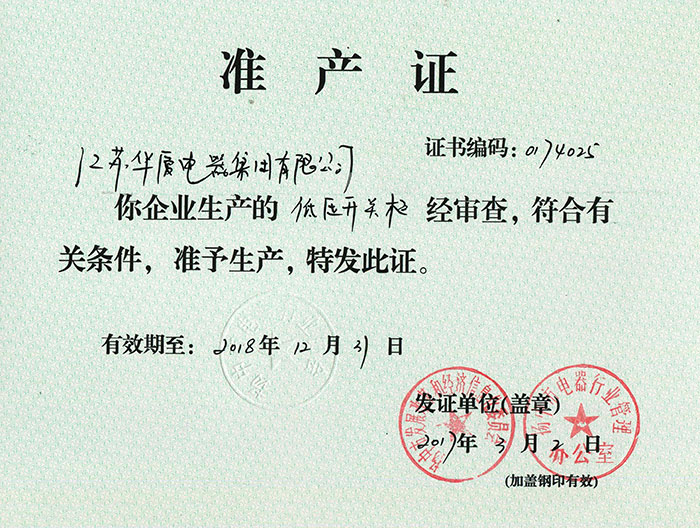 准产证
江苏华厦电器集团有限公司
证书编码：0174025
你企业生产的 低压开关柜 经审查，符合有
关条件，准予生产，特发此证。
有效期至：2018年 12 月 31 日
发证单位(盖章)
2017年 3 月 2 日
(加盖钢印有效)
扬中市发展改革和经济信息化委员会
扬中市电器行业管理
办公室